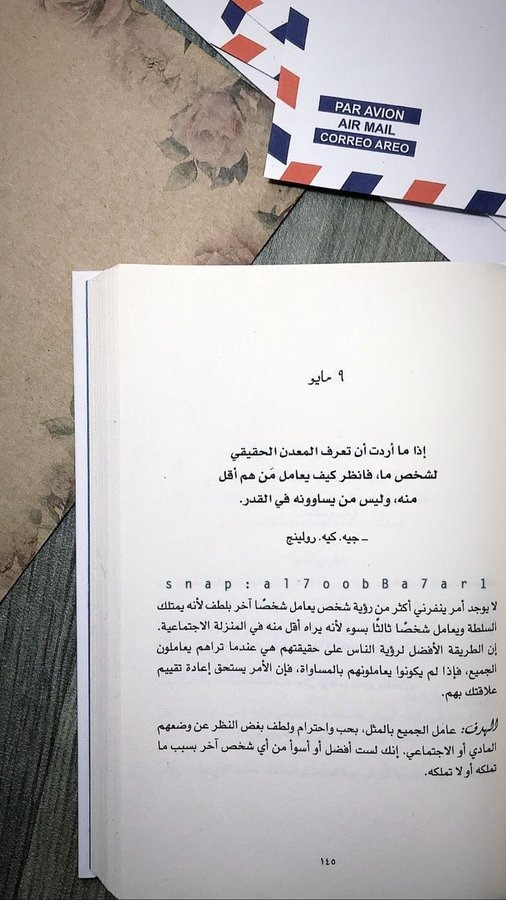 PAR AVION
AIR MAIL
CORREO AREO
٩ مايو
إذا ما أردت أن تعرف المعدن الحقيقي
لشخص ما، فانظر كيف يعامل مَن هم أقل
منه، وليس من يساوونه في القدر.
– جيه. كيه. رولينج
snap:al7oobBa7arl
لا يوجد أمر ينفرني أكثر من رؤية شخص يعامل شخصًا آخر بلطف لأنه يمتلك
السلطة ويعامل شخصًا ثالثًا بسوء لأنه يراه أقل منه في المنزلة الاجتماعية.
إن الطريقة الأفضل لرؤية الناس على حقيقتهم هي عندما تراهم يعاملون
الجميع، فإذا لم يكونوا يعاملونهم بالمساواة، فإن الأمر يستحق إعادة تقييم
علاقتك بهم.
الهدف: عامل الجميع بالمثل، بحب واحترام ولطف بغض النظر عن وضعهم
المادي أو الاجتماعي. إنك لست أفضل أو أسوأ من أي شخص آخر بسبب ما
تملكه أو لا تملكه.
١٤٥